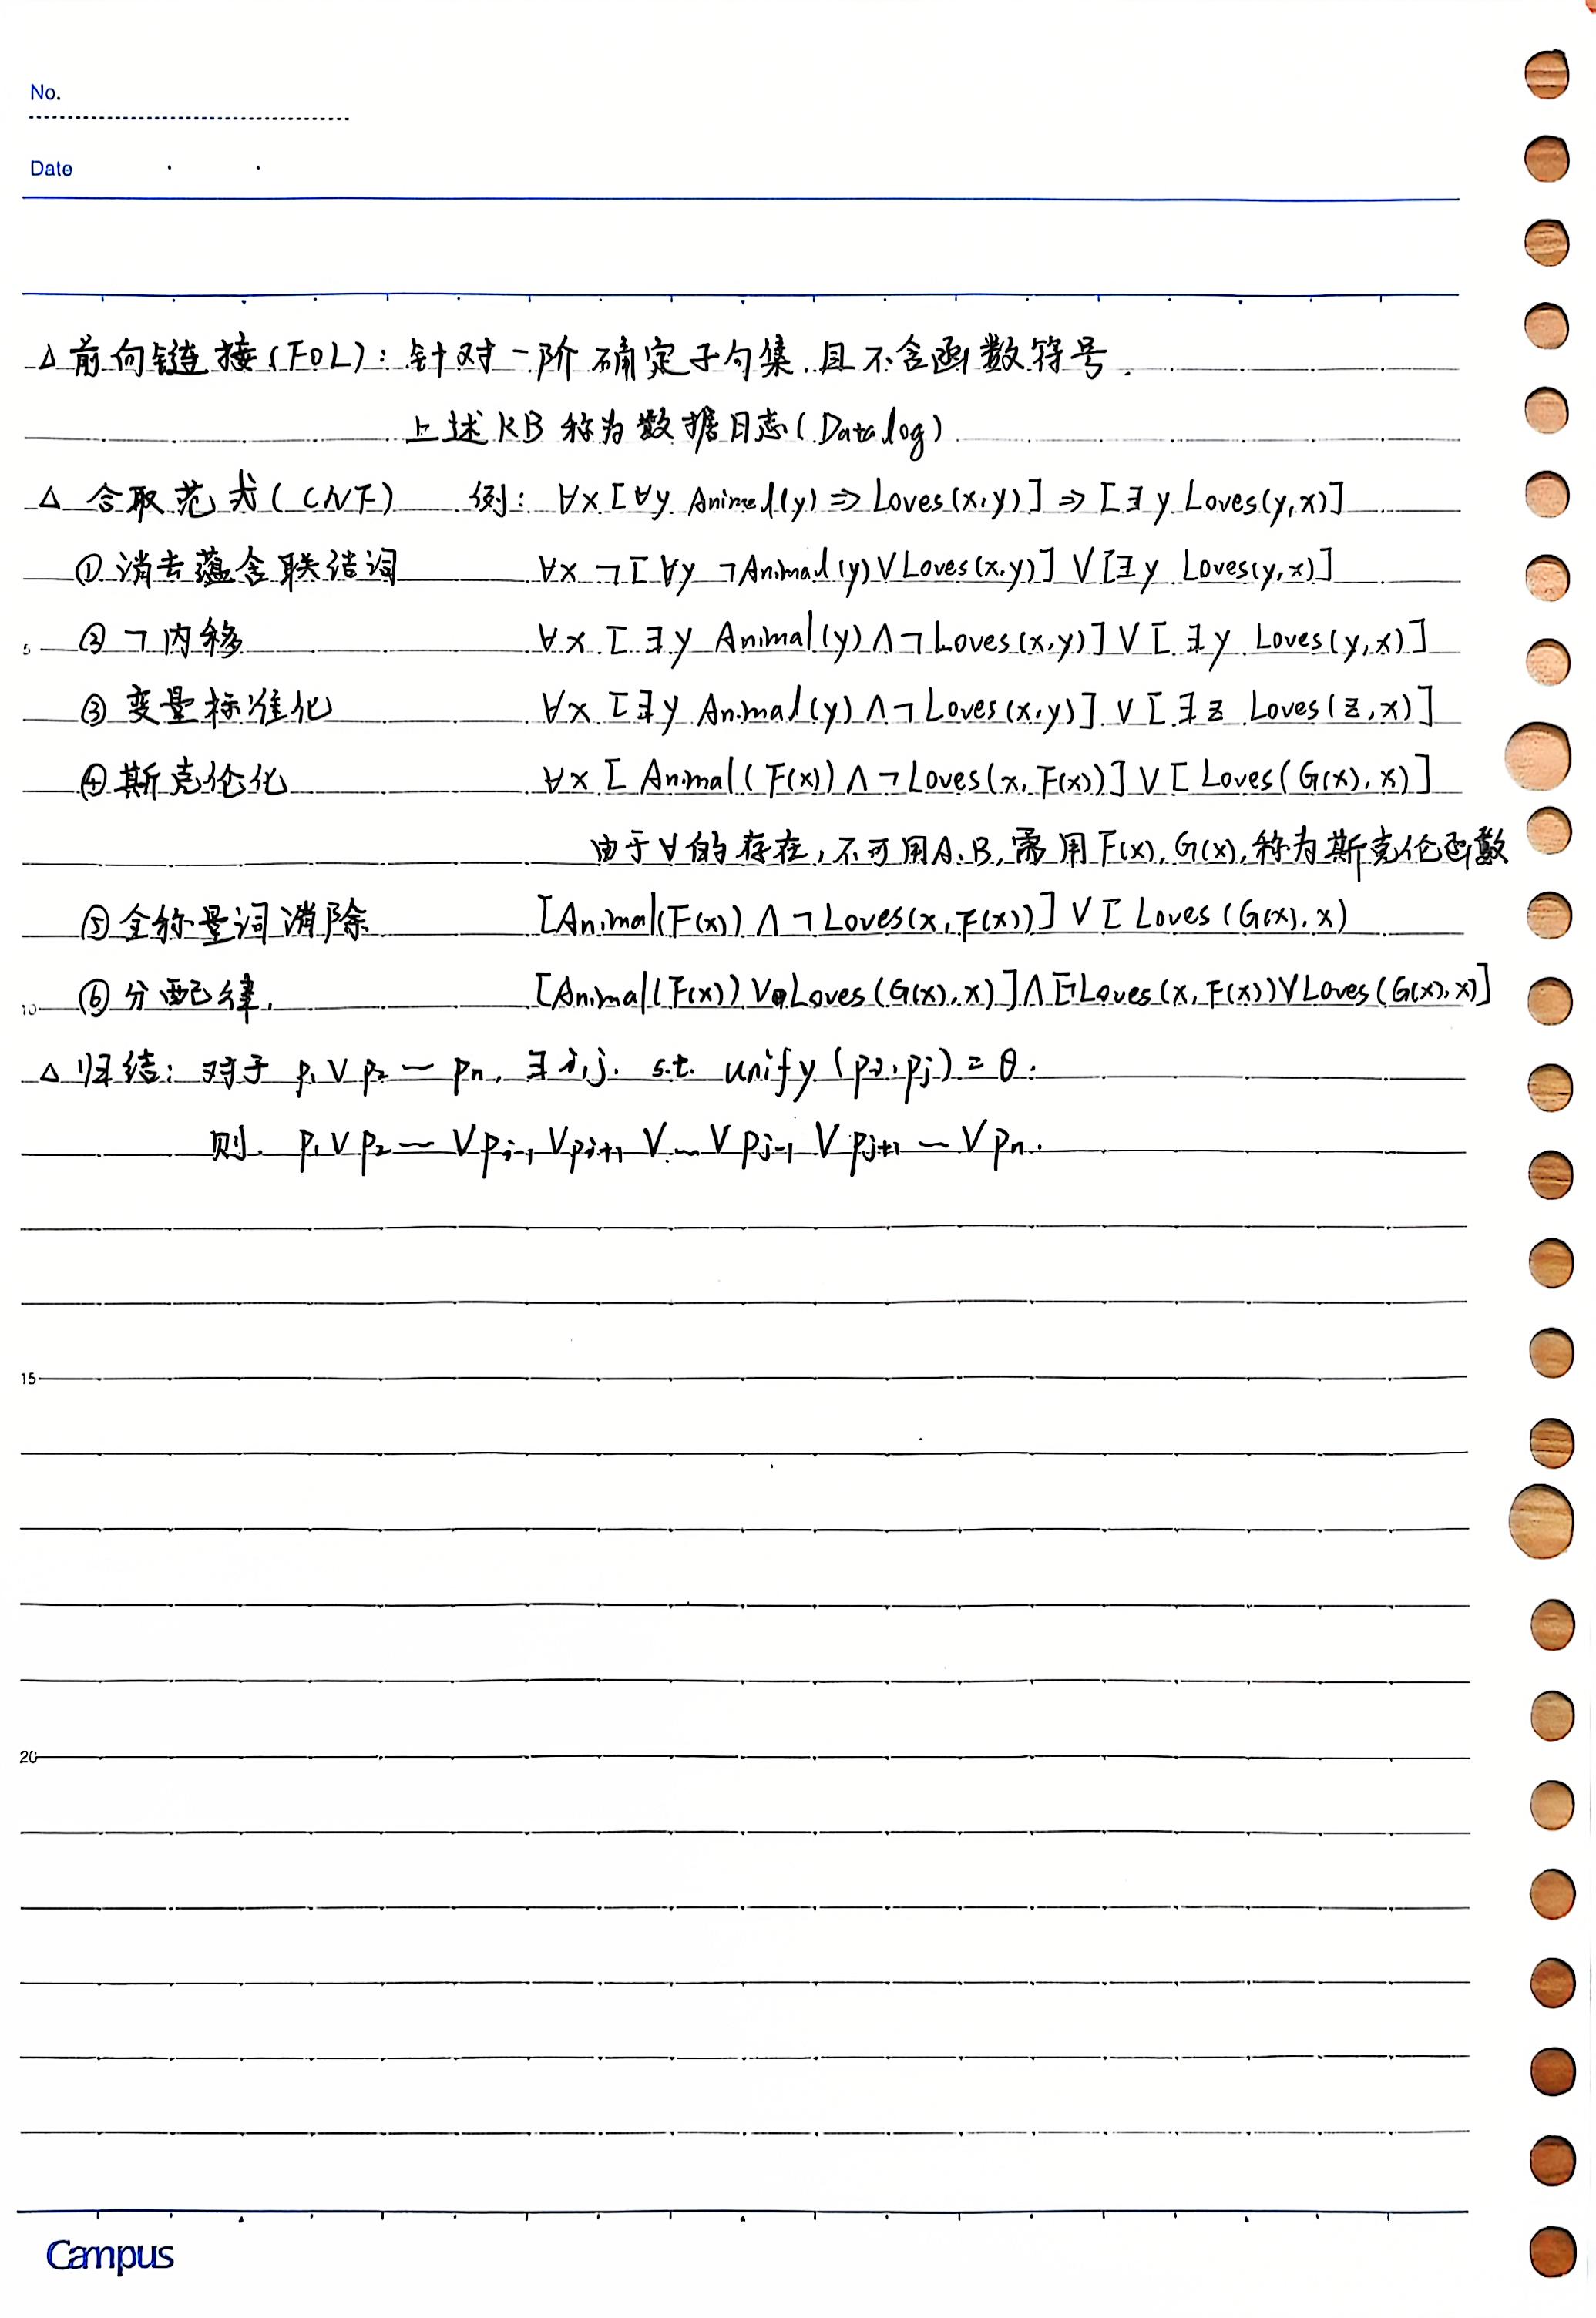 No.
Date
△ 前向链接(FOL): 针对一阶确定子句集.且不含函数符号.
上述KB称为数据日志(Datalog)
△ 合取范式(CNF) 例: ∀x [∀y Animal(y) ⇒ Loves(x,y)] ⇒ [∃y Loves(y,x)]
① 消去蕴含联结词 ∀x ¬[∀y ¬Animal(y) ∨ Loves(x,y)] ∨ [∃y Loves(y,x)]
5 ② ¬内移 ∀x [∃y Animal(y) ∧ ¬Loves(x,y)] ∨ [∃y Loves(y,x)]
③ 变量标准化 ∀x [∃y Animal(y) ∧ ¬Loves(x,y)] ∨ [∃z Loves(z,x)]
④ 斯克伦化 ∀x [Animal(F(x)) ∧ ¬Loves(x, F(x))] ∨ [Loves(G(x), x)]
由于∀的存在,不可用A.B,需用F(x).G(x).称为斯克伦函数
⑤ 全称量词消除 [Animal(F(x)) ∧ ¬Loves(x, F(x))] ∨ [Loves(G(x), x)
10 ⑥ 分配律. [Animal(F(x)) ∨ Loves(G(x), x)] ∧ [¬Loves(x, F(x)) ∨ Loves(G(x), x)]
△ 归结: 对于 p₁ ∨ p₂ … pₙ. ∃ i,j. s.t. unify(pᵢ, pⱼ) = θ.
则. p₁ ∨ p₂ … ∨ pᵢ₋₁ ∨ pᵢ₊₁ ∨ … ∨ pⱼ₋₁ ∨ pⱼ₊₁ … ∨ pₙ.
15
20
Campus